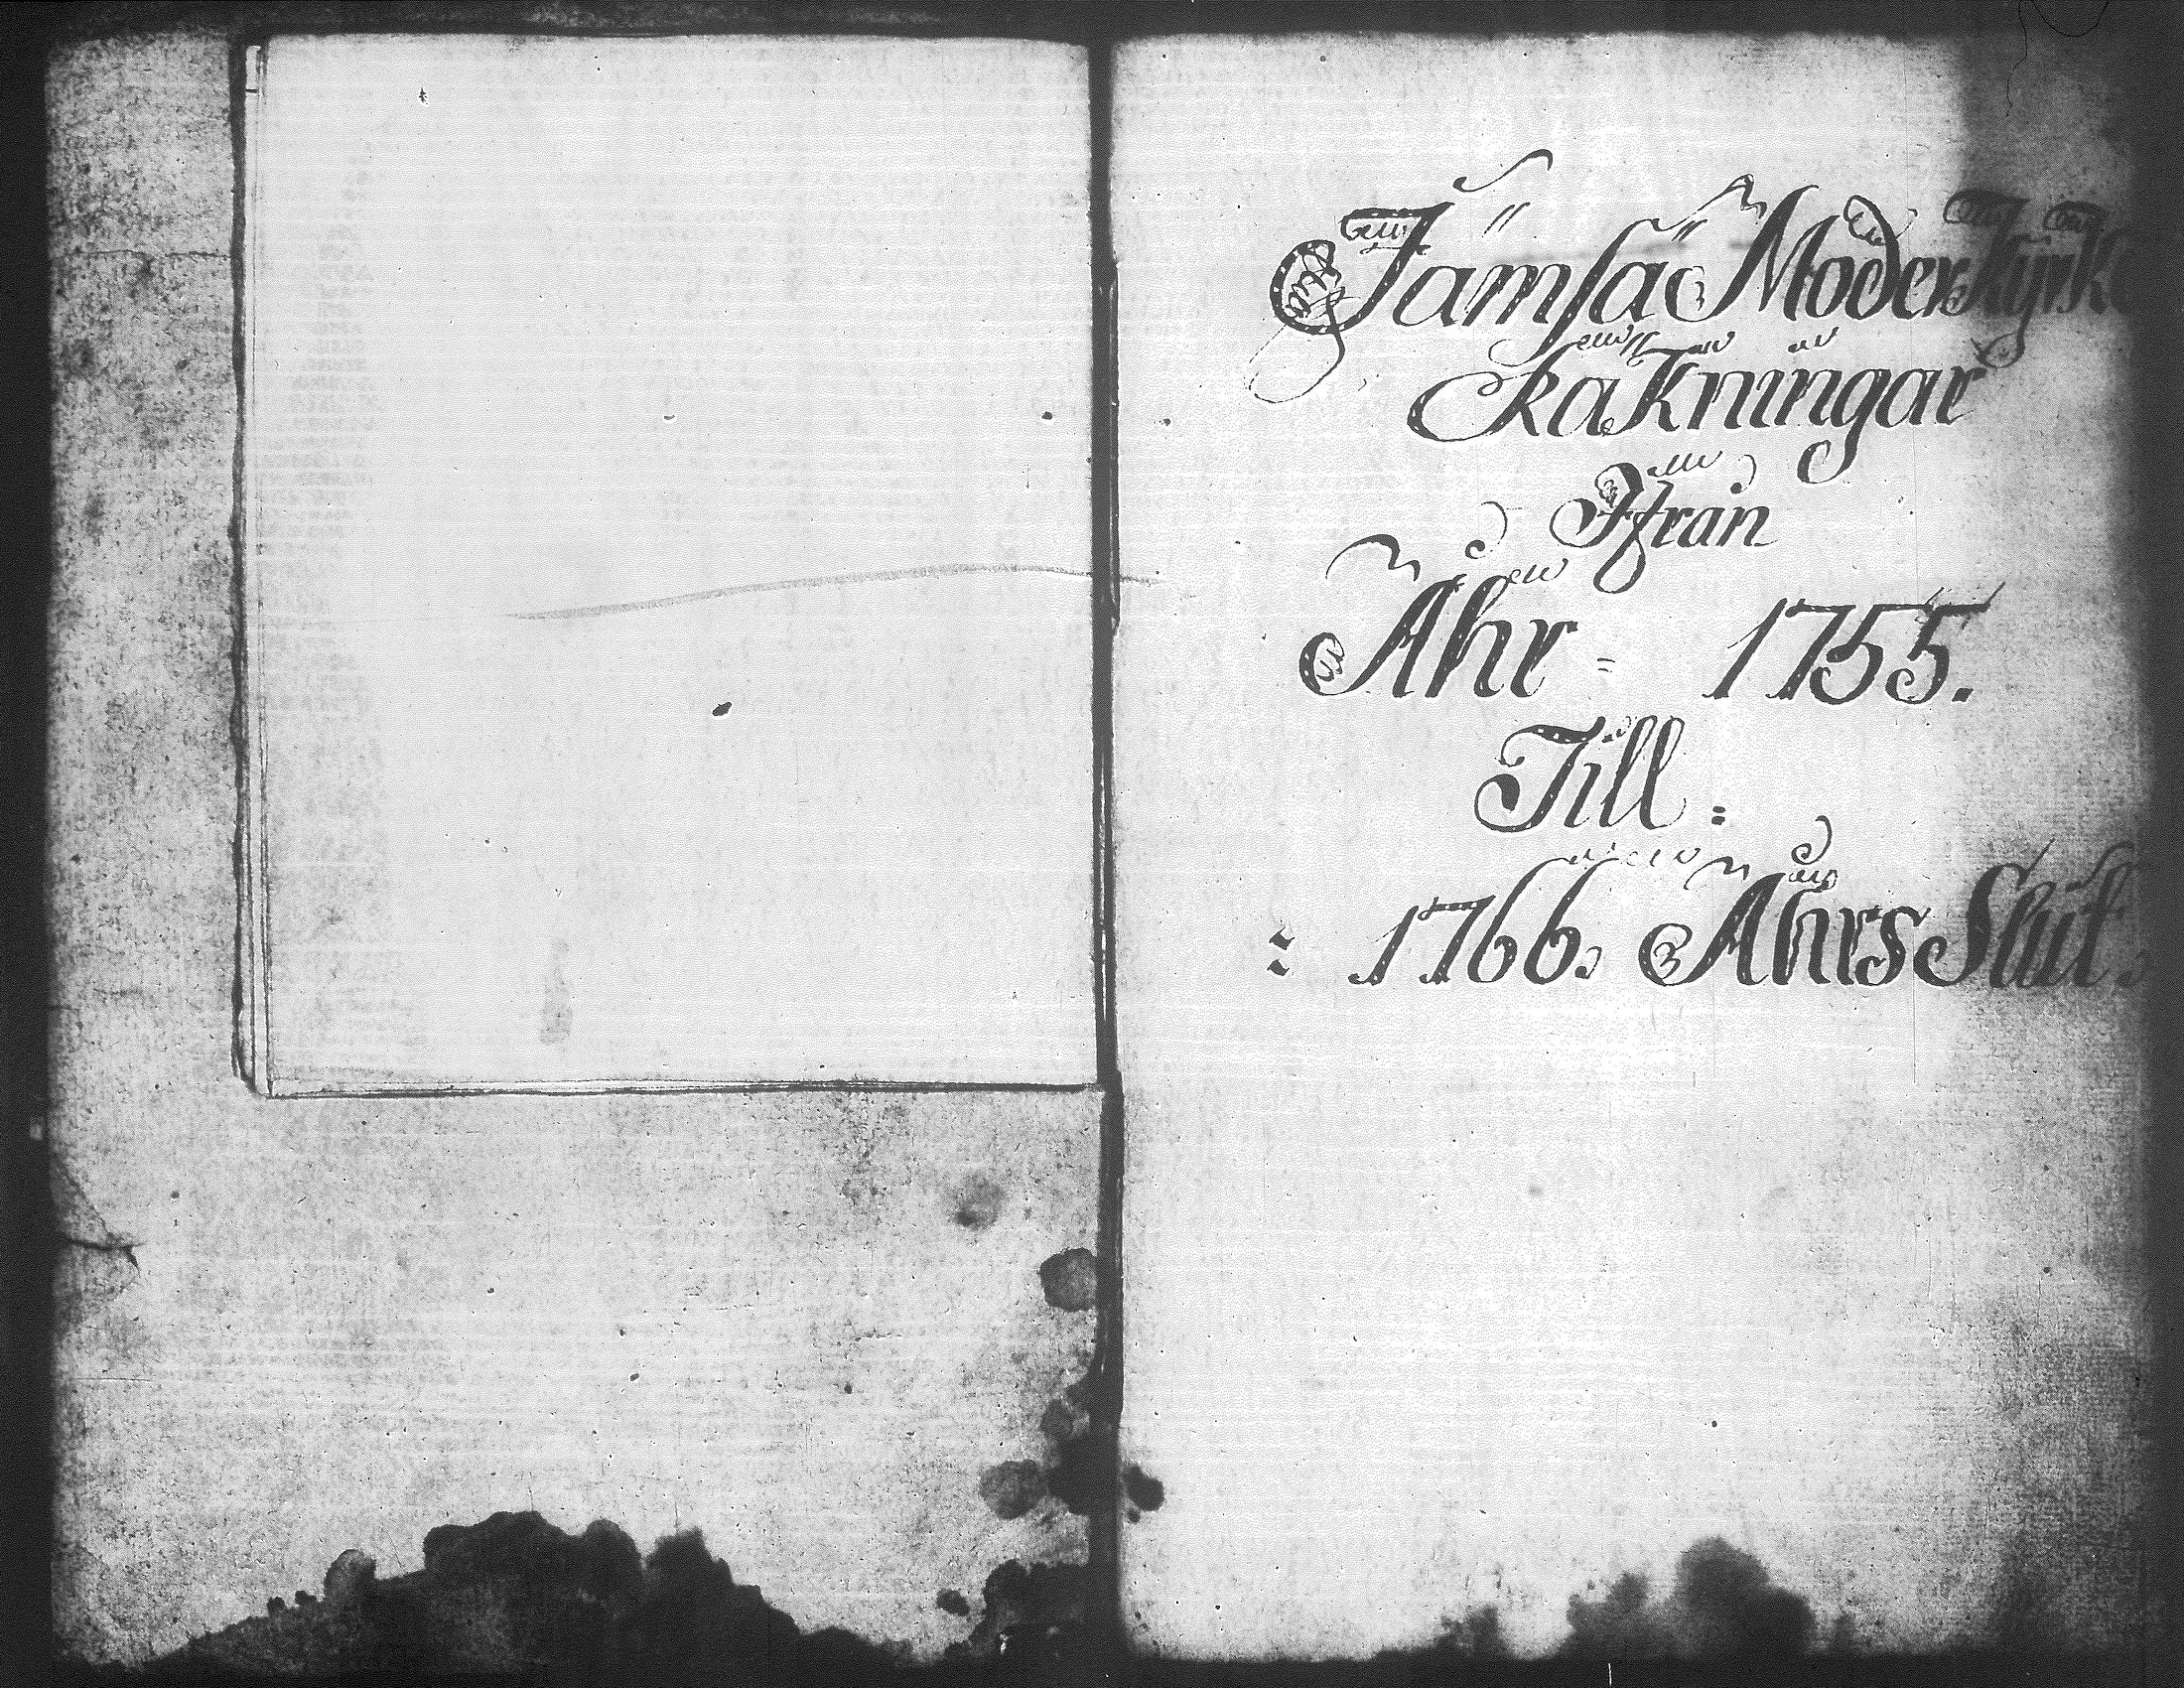 Jämsä Moder Kÿrko
Räkningar
Ifrån
Åhr = 1755.
Till :
: 1766. Åhrs Slut.